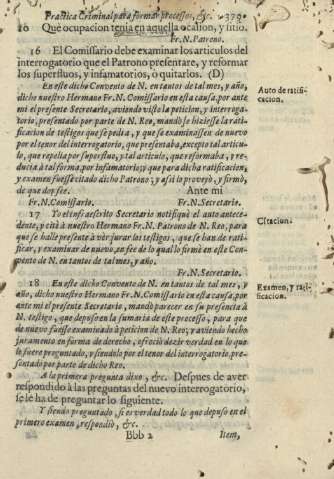 Practica Criminal para formar processos, &c. 379
10 Que ocupacion tenia en aquella ocasion, y sitio.
Fr. N. Patrono.
16 El Comissario debe examinar los articulos del
interrogatorio que el Patrono presentare, y reformar
los superfluos, y infamatorios, o quitarlos. (D)
En este dicho Convento de N. en tantos de tal mes, y año,
dicho nuestro Hermano Fr. N. Comissario en esta causa, por ante
mi el presente Secretario, aviendo visto la peticion, y interroga-
torio, presentado por parte de N. Reo, mandò se hiziesse la rati-
ficacion de testigos que se pedia, y que se examinassen de nuevo
por el tenor del interrogatorio, que presentaba, excepto tal articu-
lo, que repelia por superfluo, y tal articulo, que reformaba, y re-
ducia à tal forma, por infamatorio; y que para dicha ratificacion,
y examen fuesse citado dicho Patrono; y assi lo proveyò, y firmò,
de que doy fee. Ante mi
Fr. N. Comissario. Fr. N. Secretario.
Auto de ratifi-
cacion.
17 Yo el infraescrito Secretario notifiquè el auto antece-
dente, y citè à nuestro Hermano Fr. N. Patrono de N. Reo, para
que se halle presente à ver jurar los testigos, que se han de rati-
ficar, y examinar de nuevo, en fee de lo qual lo firmè en este Con-
vento de N. en tantos de tal mes, y año.
Fr. N. Secretario.
Citacion.
18 En este dicho Convento de N. en tantos de tal mes, y
año, dicho nuestro Hermano Fr. N. Comissario en esta causa, por
ante mi el presente Secretario, mandò parecer en su presencia à
N. testigo, que depuso en la sumaria de este processo, para que
de nuevo fuesse examinado à peticion de N. Reo; y aviendo hecho
juramento en forma de derecho, ofreciò dezir verdad en lo que
le fuere preguntado, y siendolo por el tenor del interrogatorio, pre-
sentado por parte de dicho Reo.
Examen, y rati-
ficacion.
A la primera pregunta dixo, &c. Despues de aver
respondido à las preguntas del nuevo interrogatorio,
se le ha de preguntar lo siguiente.
Y siendo preguntado, si es verdad todo lo que depuso en el
primero examen, respondiò, &c.
Bbb 2 Item,